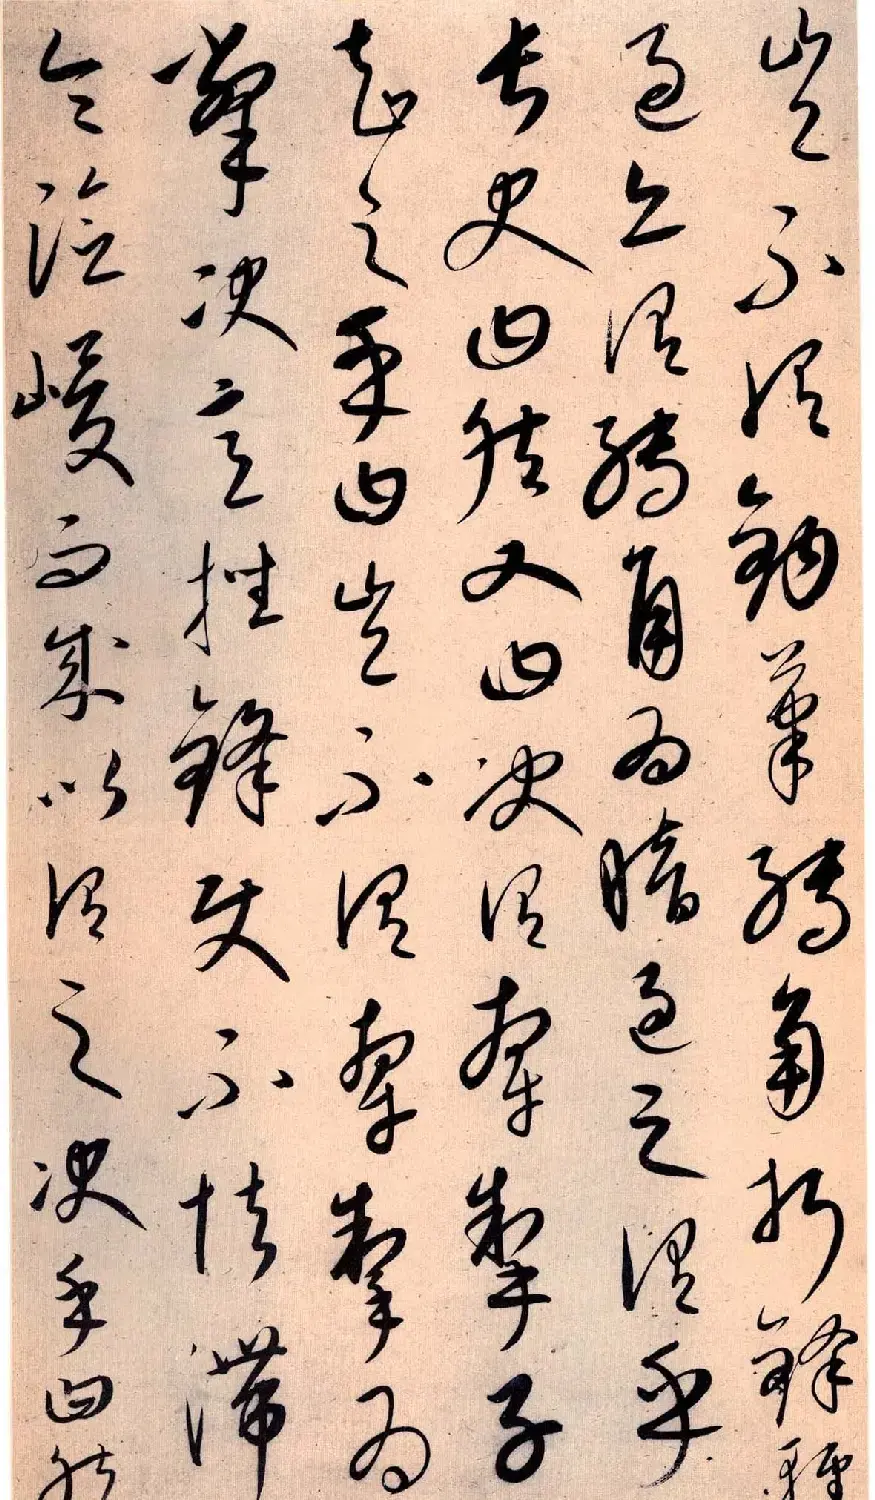 豈不謂鉤筆轉角折鋒輕
過亦謂轉角為暗過之謂乎
長史曰然又曰決謂牽掣子
知之乎曰豈不謂牽掣為
撆決意挫鋒使不怯滯
令險峻而成以謂之決乎曰然